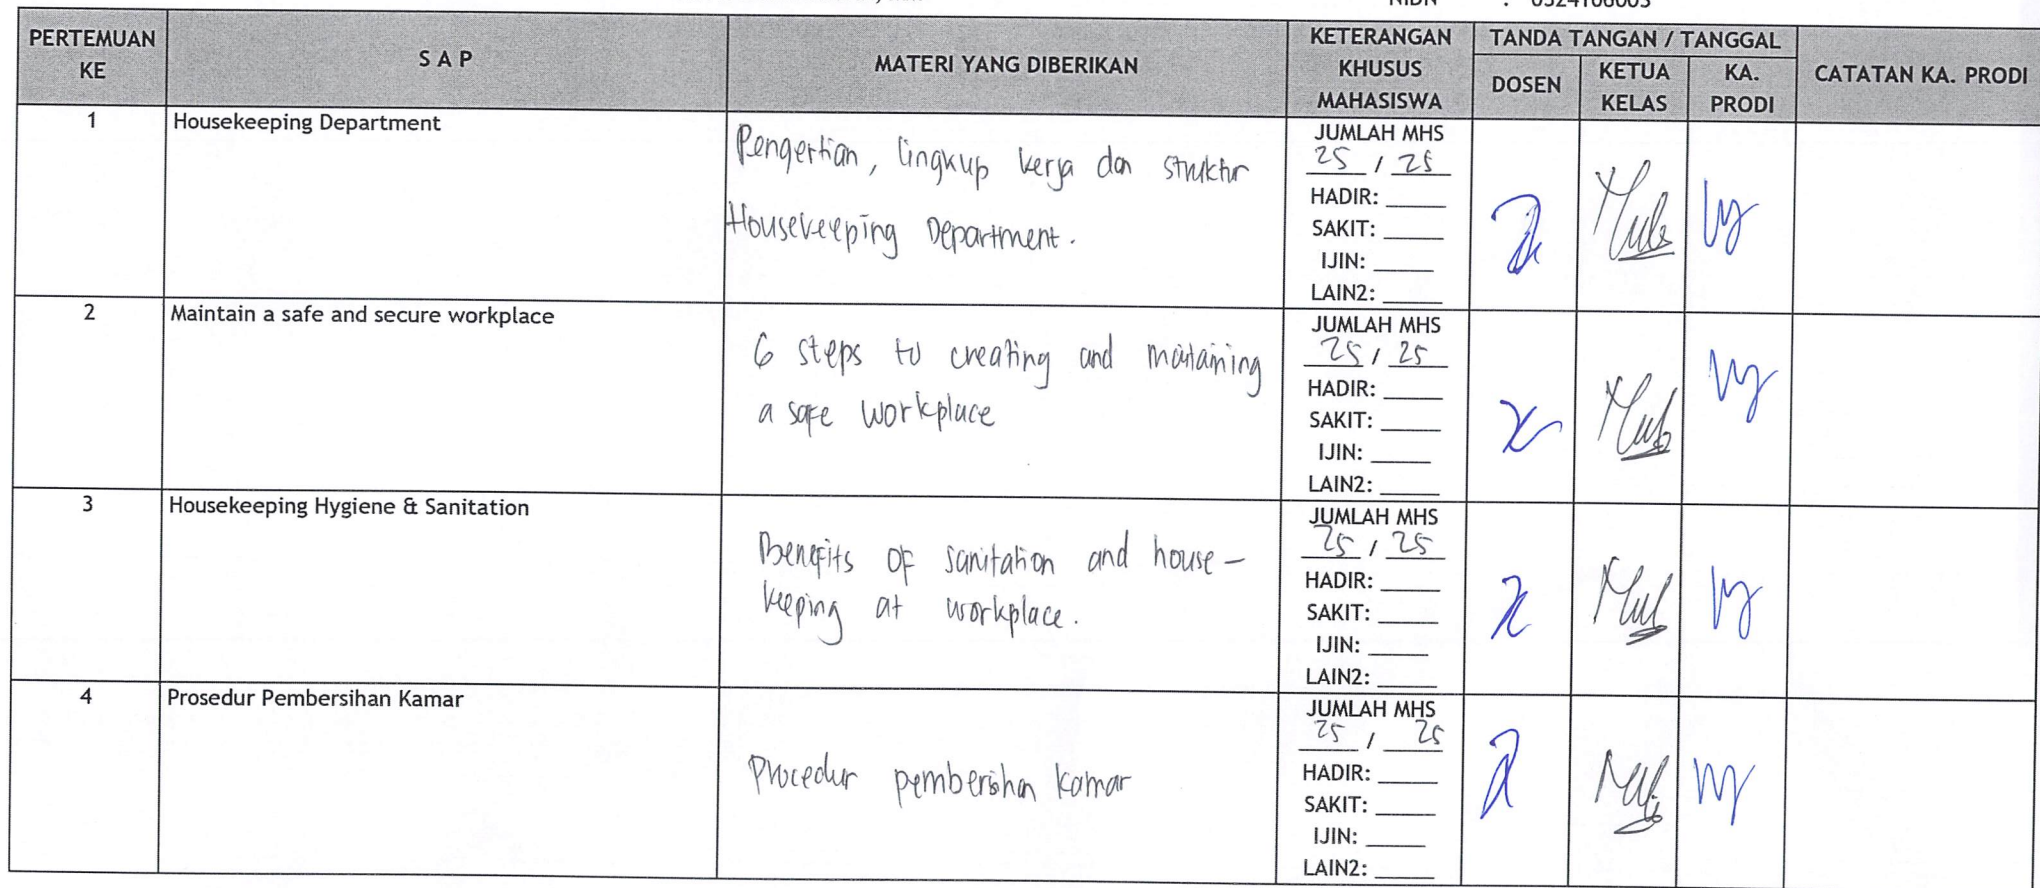 PERTEMUAN KE
S A P
MATERI YANG DIBERIKAN
KETERANGAN KHUSUS MAHASISWA
TANDA TANGAN / TANGGAL
DOSEN
KETUA KELAS
KA. PRODI
CATATAN KA. PRODI
1
Housekeeping Department
Pengertian, lingkup kerja dan struktur
Housekeeping Department.
JUMLAH MHS
25 / 25
HADIR: _____
SAKIT: _____
IJIN: _____
LAIN2: _____
2
Maintain a safe and secure workplace
6 steps to creating and maitaining
a safe workplace
JUMLAH MHS
25 / 25
HADIR: _____
SAKIT: _____
IJIN: _____
LAIN2: _____
3
Housekeeping Hygiene & Sanitation
Benefits of sanitation and house -
keeping at workplace.
JUMLAH MHS
25 / 25
HADIR: _____
SAKIT: _____
IJIN: _____
LAIN2: _____
4
Prosedur Pembersihan Kamar
Procedur pembersihan kamar
JUMLAH MHS
25 / 25
HADIR: _____
SAKIT: _____
IJIN: _____
LAIN2: _____